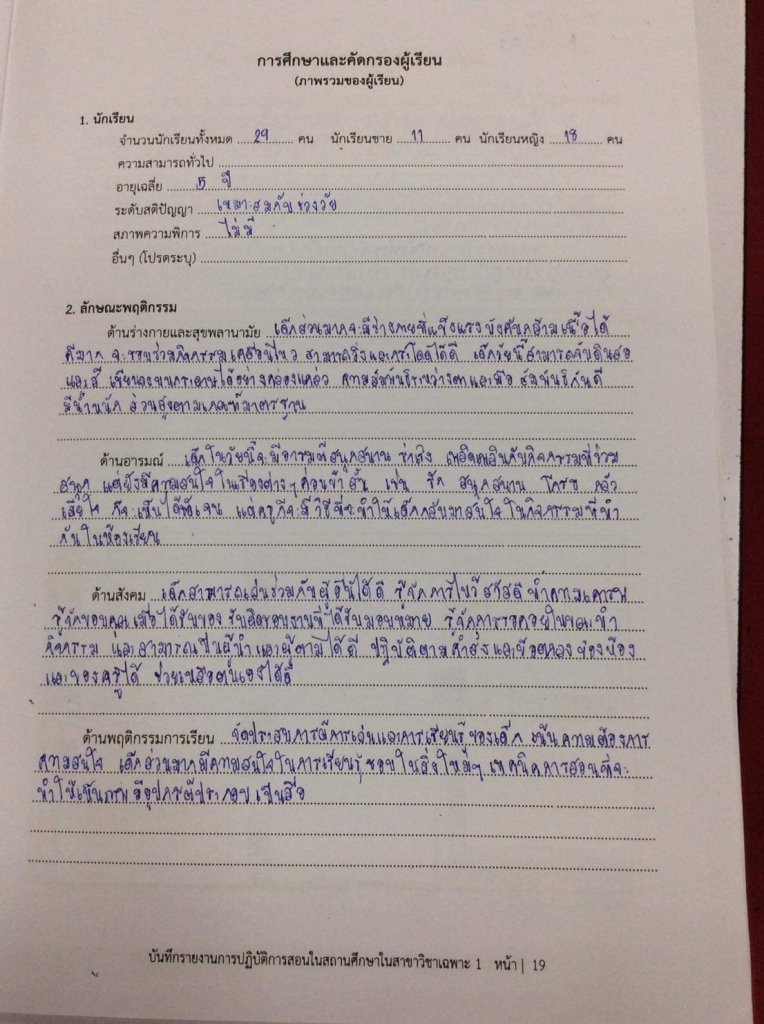 การศึกษาและคัดกรองผู้เรียน
(ภาพรวมของผู้เรียน)
1. นักเรียน
จำนวนนักเรียนทั้งหมด 29 คน นักเรียนชาย 11 คน นักเรียนหญิง 18 คน
ความสามารถทั่วไป
อายุเฉลี่ย 5 ปี
ระดับสติปัญญา เหมาะสมกับช่วงวัย
สภาพความพิการ ไม่มี
อื่นๆ (โปรดระบุ)
2. ลักษณะพฤติกรรม
ด้านร่างกายและสุขพลานามัย เด็กส่วนมากจะมีร่างกายที่แข็งแรง บังคับกล้ามเนื้อได้
ดีมาก จะชอบร่วมกิจกรรมเคลื่อนไหว สามารถวิ่งและกระโดดได้ดี เด็กวัยนี้สามารถจับดินสอ
และสี เขียนลงบนกระดาษได้อย่างคล่องแคล่ว ความสัมพันธ์ระหว่างตาและมือ สัมพันธ์กันดี
มีน้ำหนัก ส่วนสูงตามเกณฑ์มาตรฐาน
ด้านอารมณ์ เด็กในวัยนี้จะมีอารมณ์สนุกสนาน ร่าเริง เพลิดเพลินกับกิจกรรมที่ร่วม
สนุก แต่ยังมีความสนใจในเรื่องต่างๆค่อนข้างสั้น เช่น รัก สนุกสนาน โกรธ กลัว
เสียใจ ก็จะเห็นได้ชัดเจน แต่ครูก็จะมีวิธีที่จะทำให้เด็กกลับมาสนใจในกิจกรรมที่ทำ
กันในห้องเรียน
ด้านสังคม เด็กสามารถเล่นร่วมกับผู้อื่นได้ดี รู้จักการไหว้สวัสดีทำความเคารพ
รู้จักขอบคุณเมื่อได้รับของ รับผิดชอบงานที่ได้รับมอบหมาย รู้จักการรอคอยในขณะทำ
กิจกรรม และสามารถเป็นผู้นำและผู้ตามได้ดี ปฏิบัติตามคำสั่งและข้อตกลงของห้อง
และของครูได้ ช่วยเหลือตนเองได้ดี
ด้านพฤติกรรมการเรียน จัดประสบการณ์การเล่นและการเรียนรู้ของเด็ก เน้นความต้องการ
ความสนใจ เด็กส่วนมากมีความสนใจในการเรียนรู้ ชอบในสิ่งใหม่ๆ เทคนิคการสอนที่จะ
ทำให้เห็นภาพ มีอุปกรณ์ประกอบเป็นสื่อ
บันทึกรายงานการปฏิบัติการสอนในสถานศึกษาในสาขาวิชาเฉพาะ 1 หน้า | 19